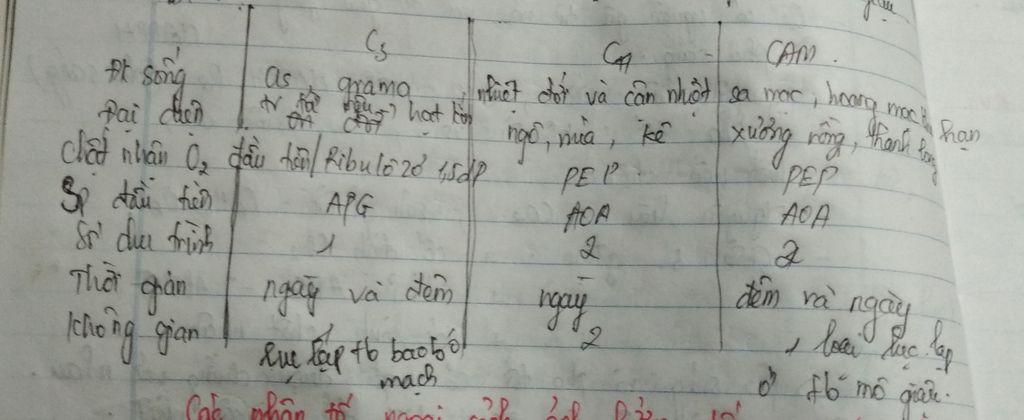 C3 C4 CAM.
Đk sống as, grama nhiệt đới và cận nhiệt sa mạc, hoang mạc hạn
Đại diện hạt kín ngô, mía, kê xương rồng, thanh long
Chất nhận O2 đầu tiên Ribulôzơ 1,5dP PEP PEP
Sp đầu tiên APG AOA AOA
Số chu trình 1 2 2
Thời gian ngày và đêm ngày đêm và ngày
Không gian 1 2 1 loại lục lạp
Lục lạp tb bao bó ở tb mô giậu.
mạch
Các nhân tố ngoại cảnh